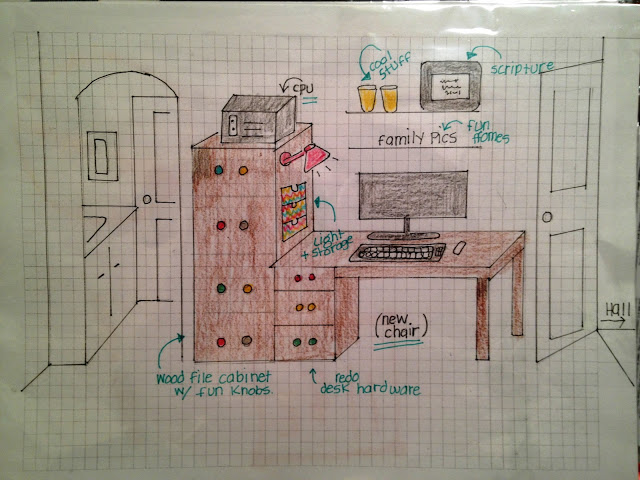 cool
stuff
scripture
CPU
family Pics
fun
frames
Light
+ storage
(new
chair)
Hall
wood file cabinet
w/ fun knobs
redo
desk hardware